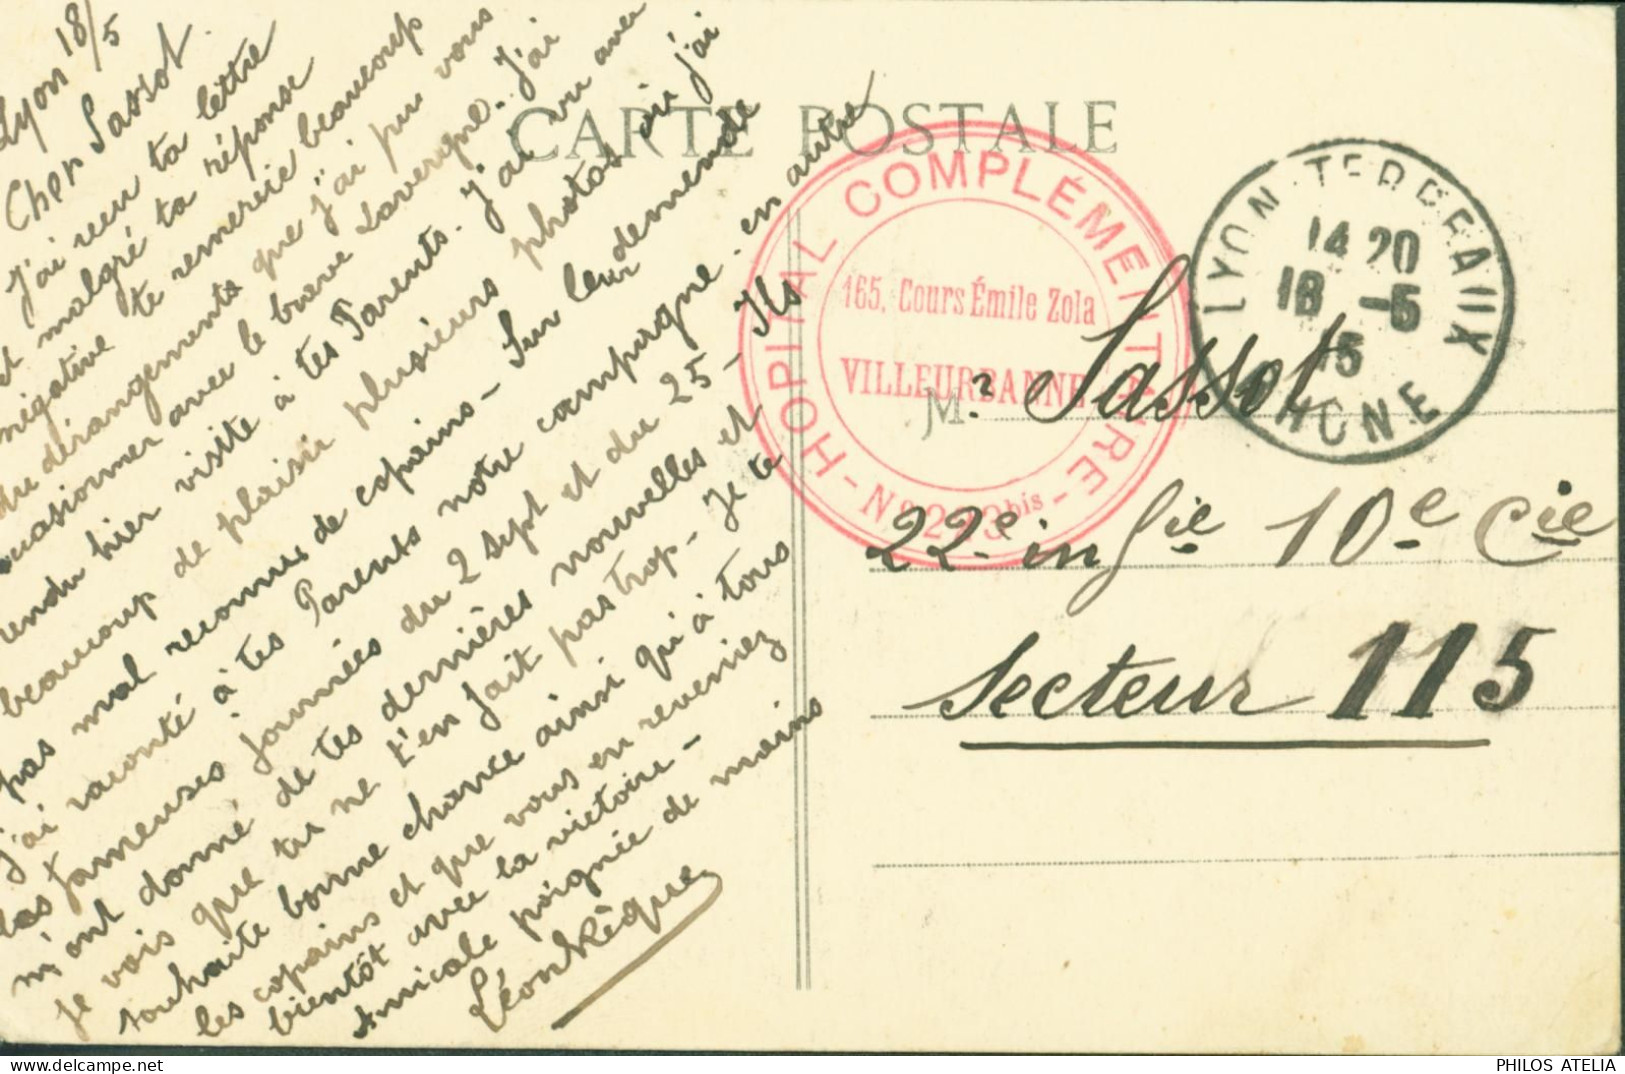 Lyon 18/5
Cher Sassot.
J'ai reçu ta lettre
et malgré ta réponse
négative te remercie beaucoup
du dérangements que j'ai pu vous
occasionner avec le brave Lavergne. J'ai
rendu hier visite à tes Parents. J'ai vu avec
beaucoup de plaisir plusieurs photos où j'ai
pas mal reconnu de copains - Sur leur demande
j'ai raconté à tes Parents notre campagne. en autre
les fameuses journées du 2 sept et du 25 - Ils
m'ont donné de tes dernières nouvelles et
je vois que tu ne t'en fait pas trop - Je te
souhaite bonne chance ainsi qu'à tous
les copains et que vous en reveniez
bientôt avec la victoire -
Amicale poignée de mains
Léon
CARTE POSTALE
HOPITAL COMPLÉMENTAIRE
165, Cours Émile Zola
VILLEURBANNE
- No 213 bis -
LYON-TERREAUX
14 20
18 -5
15
RHONE
Mr Sassot
22e infie 10e Cie
Secteur 115
PHILOS ATELIA